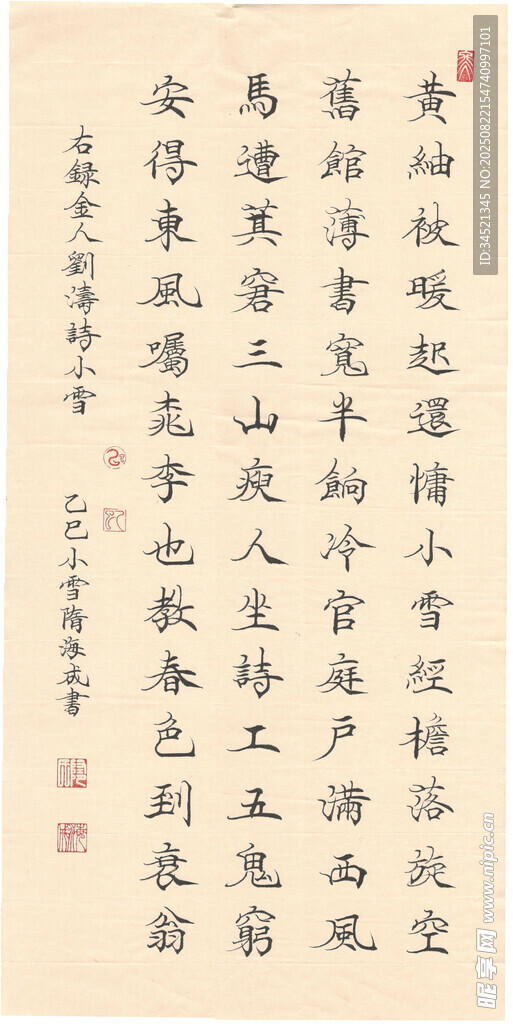 黃紬被暖起還慵小雪經檐落旋空
舊館薄書寬半餉冷官庭戶滿西風
馬遭萁窘三山瘐人坐詩工五鬼窮
安得東風囑桃李也教春色到衰翁
右録金人劉濤詩小雪
乙巳小雪隋海成書
ID:34521345 NO:20250822154740997101
昵享网 www.nipic.cn